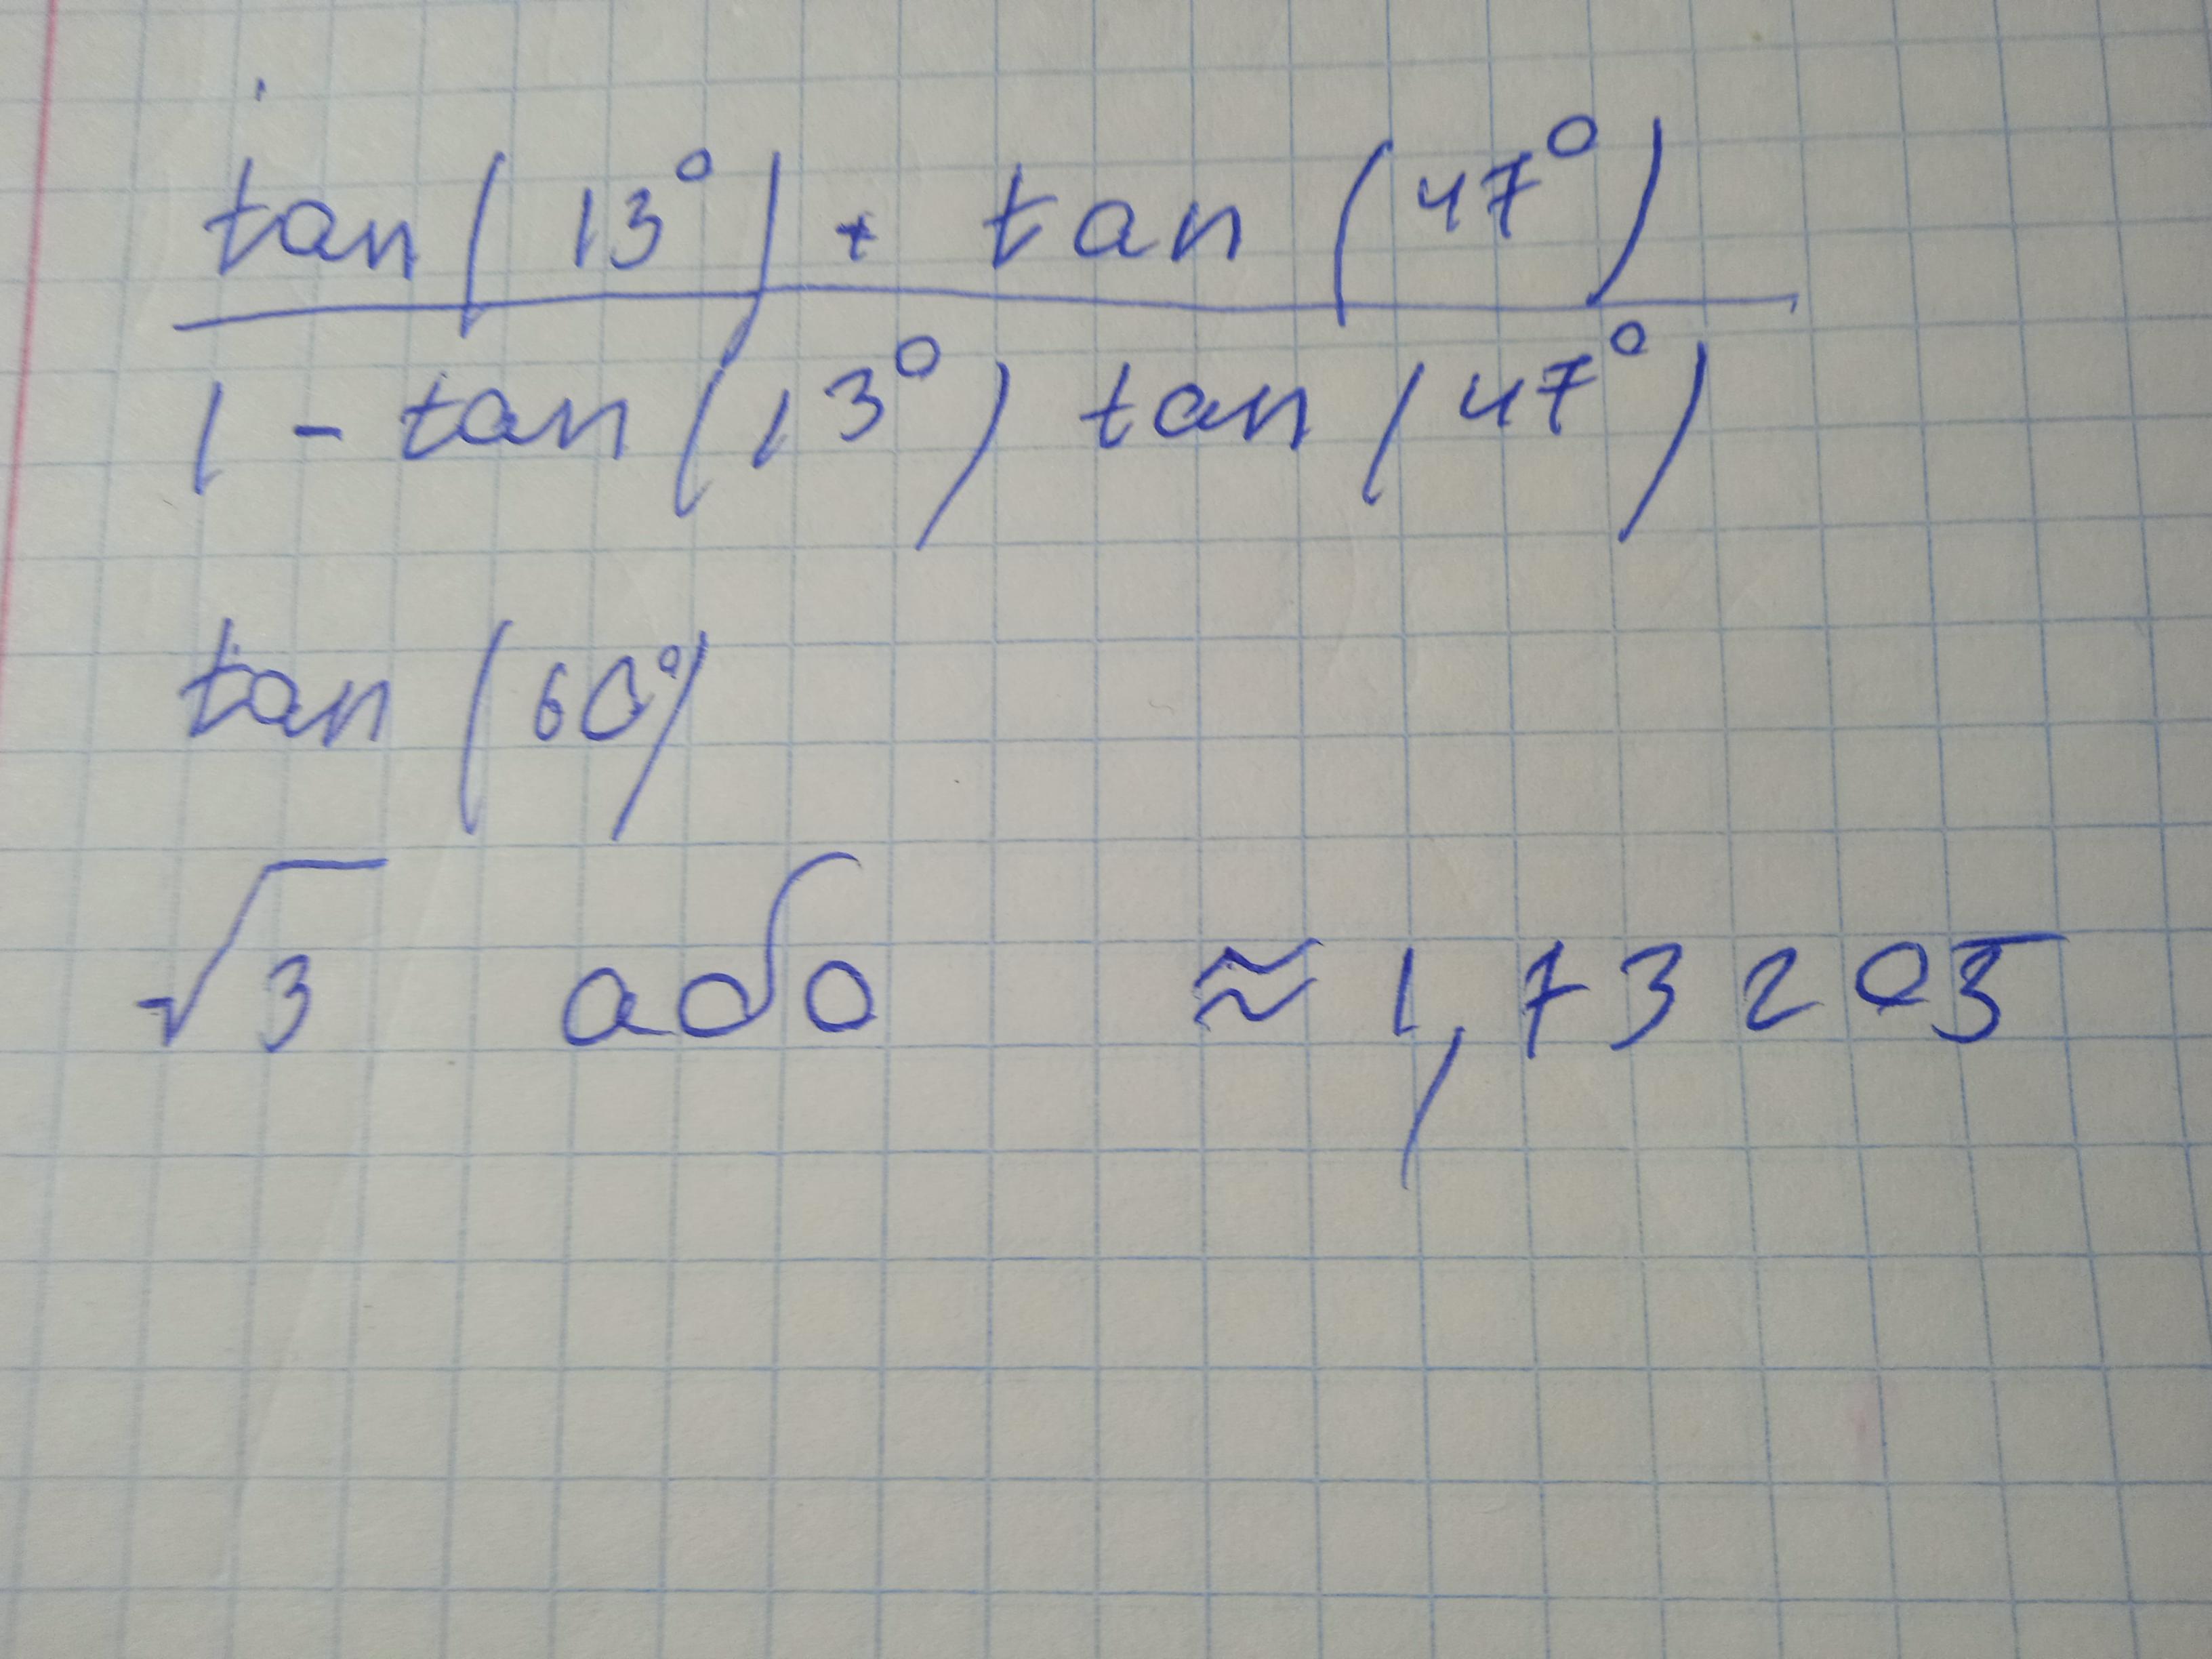 tan(13°) + tan(47°)
1 - tan(13°) tan(47°)
tan(60°)
√3 або ≈ 1,73205